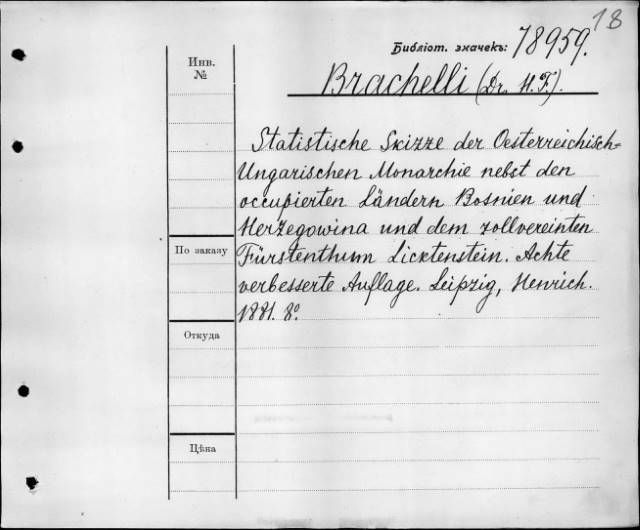 18
Библіот. значекъ: 78959.
Инв.
№
Brachelli (Dr. H. F.).
Statistische Skizze der Oesterreichisch=
Ungarischen Monarchie nebst den
occupierten Ländern Bosnien und
Herzegowina und dem zollvereinten
По заказу
Fürstenthum Licktenstein. Achte
verbesserte Auflage. Leipzig, Henrich.
1881. 8º.
Откуда
Цѣна